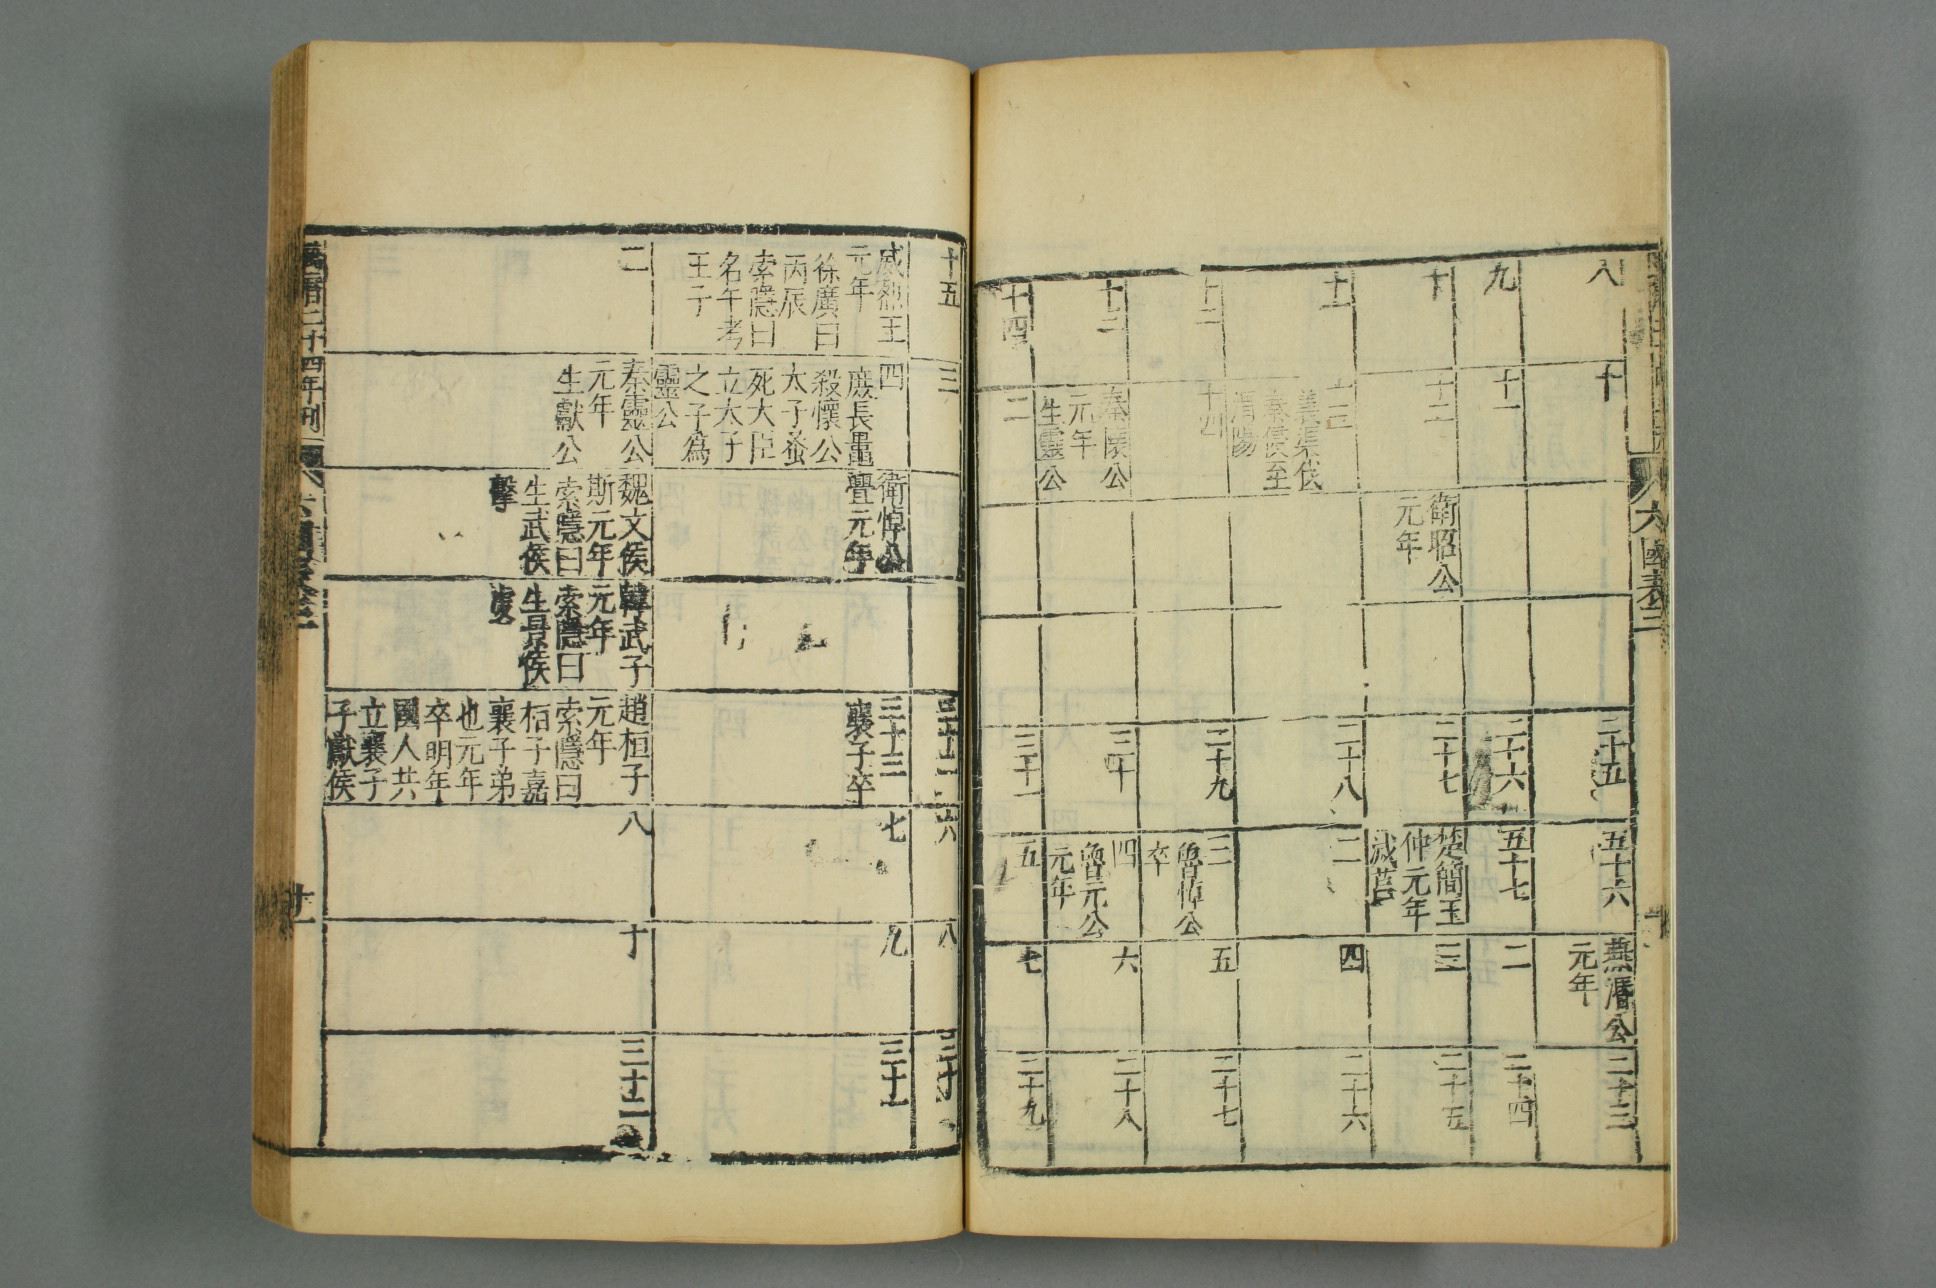 六國表三
八
十
二十五
五十六
燕湣公
元年
二十三
九
十一
二十六
五十七
二
二十四
十
十二
衛昭公
元年
二十七
楚簡王
仲元年
滅莒
三
二十五
十一
十三
義渠伐
秦侵至
渭陽
二十八
二
四
二十六
十二
十四
二十九
三
魯悼公
卒
五
二十七
十三
秦懷公
元年
生靈公
三十
四
魯元公
元年
六
二十八
十四
二
三十一
五
七
二十九
十五
三
三十二
六
八
三十
威烈王
元年
徐廣曰
丙辰
索隱曰
名午考
王子
四
庶長鼂
殺懷公
太子蚤
死大臣
立太子
之子爲
靈公
衛悼公
亹元年
三十三
襄子卒
七
九
三十一
二
秦靈公
元年
生獻公
魏文侯
斯元年
索隱曰
生武侯
擊
韓武子
元年
索隱曰
生景侯
虔
趙桓子
元年
索隱曰
桓子嘉
襄子弟
也元年
卒明年
國人共
立襄子
子獻侯
八
十
三十二
萬曆二十四年刊
六國表三
十一